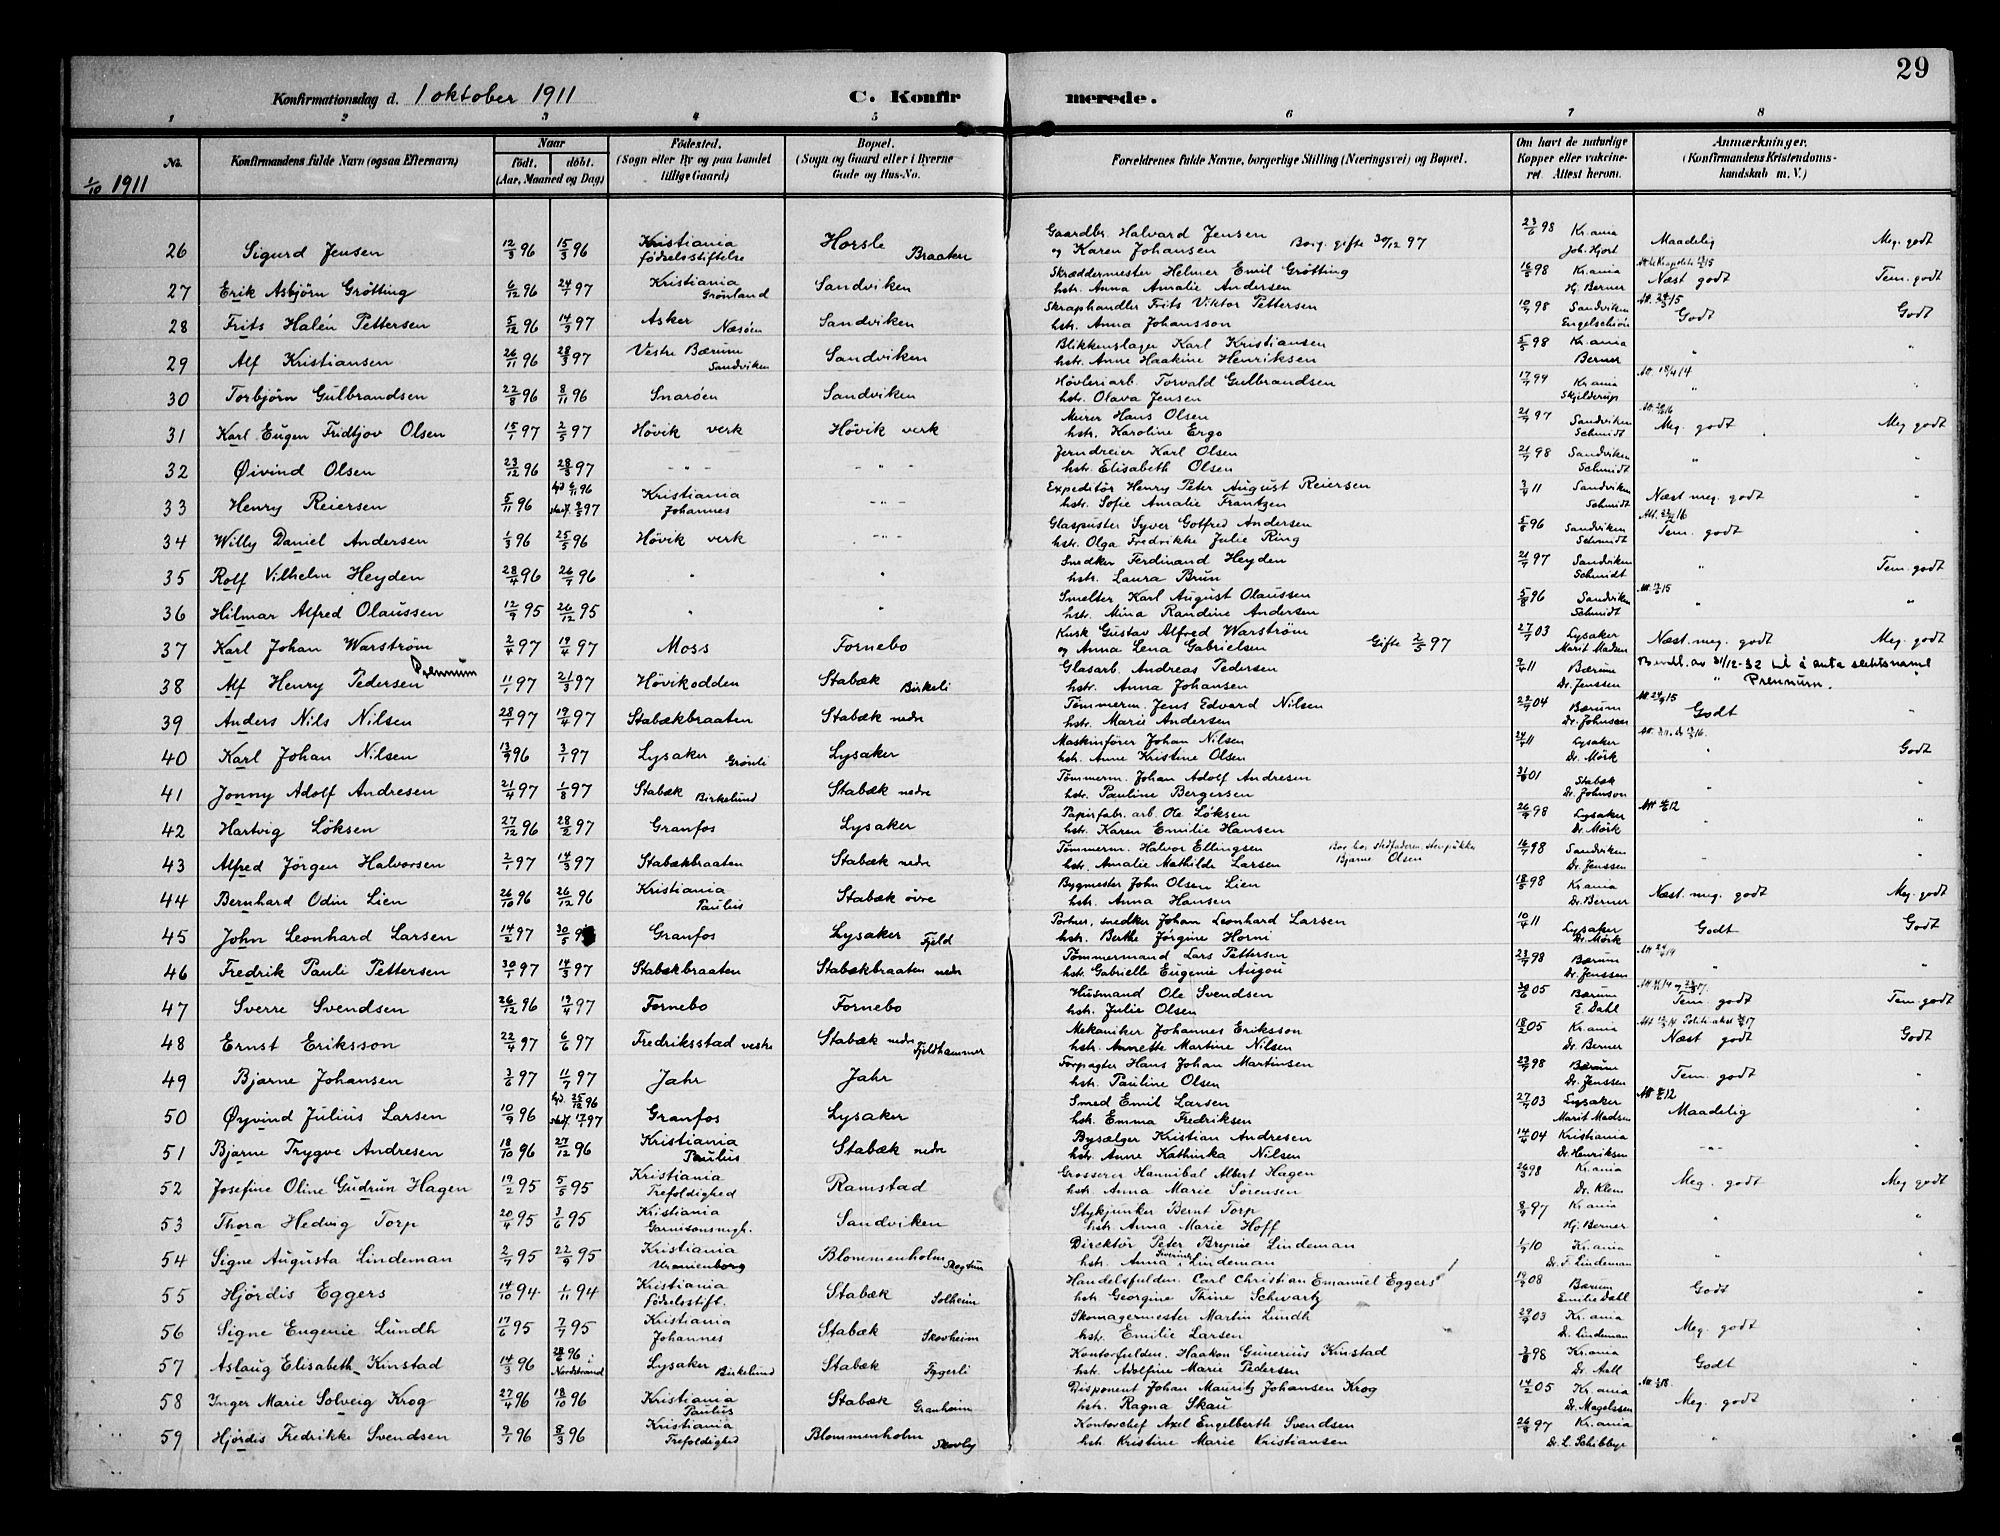 29
Konfirmationsdag d. 1 oktober 1911
C. Konfirmerede.
1 2 3 4 5 6 7 8
No.
Konfirmandens fulde Navn (ogsaa Efternavn)
Naar
født. døbt.
(Aar, Maaned og Dag)
Fødested.
(Sogn eller By og paa Landet
tillige Gaard)
Bopæl.
(Sogn og Gaard eller i Byerne
Gade og Hus-No.
Forældrenes fulde Navne, borgerlige Stilling (Næringsvei) og Bopæl.
Om havt de naturlige
Kopper eller vakcine-
ret Attest herom.
Anmærkninger.
(Konfirmandens Kristendoms-
kundskab m. V.)
1/10 1911
26 Sigurd Jensen 12/3 96 15/3 96 Kristiania fødselsstiftelse Horsle Braaten Gaardbr. Halvard Jensen og Karen Johansen Borg. gifte 30/12 97 23/6 98 Kr.ania Joh. Hjort Maadelig Meg. godt
27 Erik Asbjörn Grötting 6/12 96 24/1 97 Kristiania Grønland Sandviken Skræddermester Helmer Emil Grötting hstr. Anna Amalie Andersen 98 Kr.ania Hj. Berner Næst godt Tem. godt
28 Frits Halén Pettersen 5/12 96 14/3 97 Asker Næsöen Sandviken Skraphandler Frits Viktor Pettersen hstr. Anna Johansson 98 Sandviken Engelschiön Godt Godt
29 Alf Kristiansen 26/11 96 28/3 97 Vestre Bærum Sandviken Sandviken Blikkenslager Karl Kristiansen hstr. Anne Haakine Henriksen 98 Kr.ania Berner " "
30 Torbjörn Gulbrandsen 22/8 96 8/11 96 Snaröen Sandviken Høvleriarb. Torvald Gulbrandsen hstr. Olava Jensen Kr.ania Skjelderup Att. 18/4 14 " "
31 Karl Eugen Fridtjov Olsen 15/1 97 2/5 97 Hövik verk Hövik verk Murer Hans Olsen hstr. Karoline Ergo 97 Sandviken Schmidt Meg. godt Meg godt
32 Øivind Olsen 23/12 96 28/3 97 - " - - " - Jerndreier Karl Olsen hstr. Elisabeth Olsen 98 Sandviken Schmidt " "
33 Henry Reiersen 5/11 96 6/11 96 97 Kristiania Johannes - " - Expeditör Henry Peter August Reiersen hstr. Sofie Amalie Frantzen 11 Sandviken Schmidt Næst meg. godt "
34 Willy Daniel Andersen 1/3 96 25/5 96 Hövik verk - " - Glaspuster Syver Gotfred Andersen hstr. Olga Fredrikke Julie Ring 5/8 96 Sandviken Schmidt Tem. godt "
35 Rolf Vilhelm Heyden 28/4 96 26/7 96 " " Snedker Ferdinand Heyden hstr. Laura Brun 97 Sandviken Schmidt " Tem. godt
36 Hilmar Alfred Olaussen 12/9 95 26/12 95 " " Smelter Karl August Olaussen hstr. Mina Randine Andersen 5/8 96 Sandviken Schmidt " "
37 Karl Johan Warström 2/4 97 19/4 97 Moss Fornebo Kusk Gustav Alfred Warström og Anna Lena Gabrielsen Gifte 2/5 97 03 Lysaker Marit Madsen Næst. meg. godt Meg. godt
38 Alf Henry Pedersen Prennum 11/1 97 21/3 97 Hövikodden Stabæk Birkeli Glasarb. Andreas Pedersen hstr. Anna Johansen 11 Bærum Dr. Jenssen av 31/12-32 å anta slektsnavnet Prennum.
39 Anders Nils Nilsen 28/1 97 19/4 97 Stabækbraaten Stabæk nedre Tömmerm. Jens Edvard Nilsen hstr. Marie Andersen 04 Bærum Dr. Johnson Godt "
40 Karl Johan Nilsen 13/9 96 3/1 97 Lysaker Grönli Lysaker Maskinförer Johan Nilsen hstr. Anne Kristine Olsen 11 Lysaker Dr. Mörk " Godt
41 Jonny Adolf Andresen 21/4 97 1/8 97 Stabæk Birkelund Stabæk nedre Tömmerm. Johan Adolf Andresen hstr. Pauline Bergersen 01 Stabæk Dr. Johnson " "
42 Hartvig Löksen 27/12 96 28/2 97 Granfos Lysaker Papirfabr. arb. Ole Löksen hstr. Karen Emilie Hansen 98 Lysaker Dr. Mörk "
43 Alfred Jörgen Halvorsen 2/1 97 14/3 97 Stabækbraaten Stabæk nedre Tömmerm. Halvor Ellingsen hstr. Amalie Mathilde Larsen Bor hos stedfaderen Bjarne Olsen 98 Sandviken Dr. Jenssen " "
44 Bernhard Odin Lien 26/10 96 26/12 96 Kristiania Paulus Stabæk övre Bygmester John Olsen Lien hstr. Anna Hansen 98 Kr.ania Dr. Berner Næst. meg. godt Meg. godt
45 John Leonhard Larsen 14/2 97 30/5 Granfos Lysaker Fjeld Portner, snedker Johan Leonhard Larsen hstr. Berthe Jörgine Horni 11 Lysaker Dr. Mörk Godt Godt
46 Fredrik Pauli Pettersen 30/1 97 14/3 97 Stabækbraaten Stabækbraaten nedr Tömmermand Lars Pettersen hstr. Gabrielle Eugenie Augou 98 Bærum Dr. Jenssen " "
47 Sverre Svendsen 26/12 96 19/4 97 Fornebo Fornebo Husmand Ole Svendsen hstr. Julie Olsen 05 Bærum E. Dahl Tem. godt Tem. godt
48 Ernst Eriksson 22/4 97 6/6 97 Fredriksstad vestre Stabæk nedr Fjeldhammer Mekaniker Johannes Eriksson hstr. Annette Martine Nilsen 05 Kr.ania Dr. Berner Næst godt Godt
49 Bjarne Johansen 3/6 97 11/7 97 Jahr Jahr Forpagter Hans Johan Martinsen hstr. Pauline Olsen 98 Bærum Dr. Jenssen Tem. godt "
50 Øyvind Julius Larsen 10/9 96 25/12 96 97 Granfos Lysaker Smed Emil Larsen hstr. Emma Fredriksen 03 Lysaker Marit Madsen Maadelig "
51 Bjarne Trygve Andresen 18/10 96 27/12 96 Kristiania Paulus Stabæk nedr Bysælger Kristian Andresen hstr. Anne Kathinka Nilsen 04 Kristiania Dr. Henriksen - " - "
52 Josefine Oline Gudrun Hagen 19/2 95 5/5 95 Kristiania Trefoldighed Ramstad Grosserer Hannibal Albert Hagen hstr. Anna Marie Sörensen 98 Kr.ania Dr. Klem Meg. godt Meg godt
53 Thora Hedvig Torp 20/4 95 3/6 95 Kristiania Garnisonsmgh. Sandviken Stykjunker Bernt Torp hstr. Anna Marie Hoff 97 Kr.ania Hj. Berner " "
54 Signe Augusta Lindeman 2/7 95 22/9 95 Kristiania Uranienborg Blommenholm Skogtun Direktör Peter Brynie Lindeman hstr. Anna Severine Lindeman 10 Kr.ania Dr. F. Lindeman " "
55 Hjördis Eggers 14/10 94 1/11 94 Kristiania födselsstift. Stabæk Solheim Handelsfuldm. Carl Christian Emanuel Eggers hstr. Georgine Thine Schwartz 08 Bærum Emilie Dahl Godt "
56 Signe Eugenie Lundh 17/6 95 7/7 95 Kristiania Johannes Stabæk Skovheim Skomagermester Martin Lundh hstr. Emilie Larsen 03 Kr.ania Dr. Lindeman Meg. godt "
57 Aslaug Elisabeth Kinstad 14/3 96 28/6 96 i Nordstrand Lysaker Birkelund Stabæk Tyggerli Kontorfuldm. Haakon Gunerius Kinstad hstr. Adolfine Marie Pedersen 98 Kr.ania Dr. Aall Godt "
58 Inger Marie Solveig Krog 27/4 96 18/10 96 Kristiania Paulus Stabæk Granheim Disponent Johan Mauritz Johansen Krog hstr. Ragna Skau 14/2 05 Kr.ania Dr. Magelssen Meg. godt "
59 Hjördis Fredrikke Svendsen 2/1 96 8/3 96 Kristiania Trefoldighed Blommenholm Skovly Kontorchef Axel Engelberth Svendsen hstr. Kristine Marie Kristiansen 97 Kr.ania Dr. L. Schibbye " "